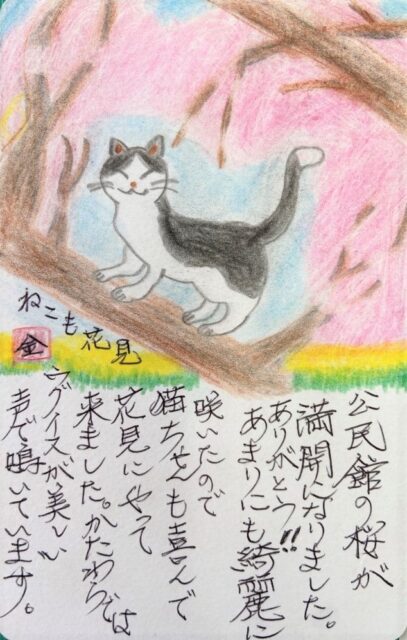 ねこも花見
金
公民館の桜が
満開になりました。
ありがとう!!
あまりにも綺麗に
咲いたので
猫ちゃんも喜んで
花見にやって
来ました。かたわらでは
ウグイスが、美しい
声で鳴いています。